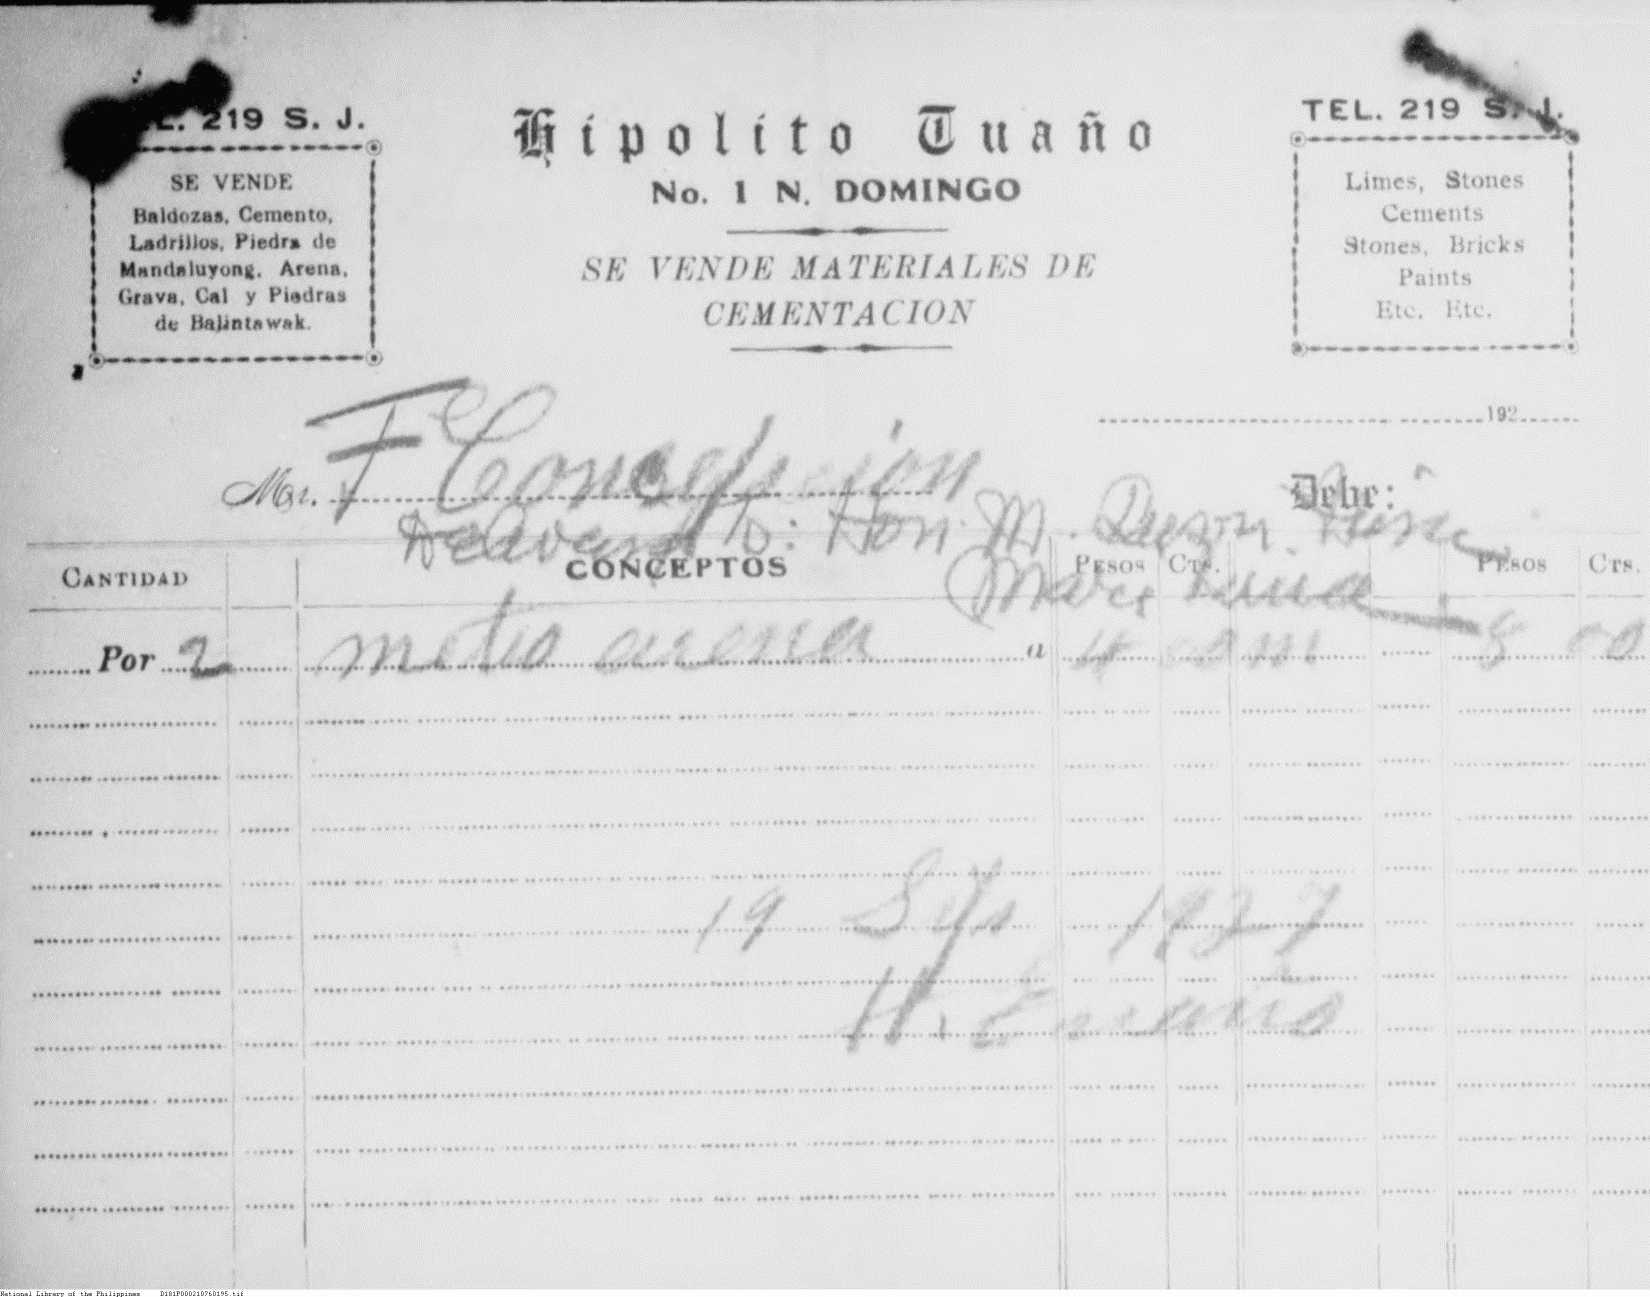 TEL. 219 S. J.
SE VENDE
Baldozas, Cemento,
Ladrillos, Piedra de
Mandaluyong, Arena,
Grava, Cal y Piedras
de Balintawak.
Hipolito Tuaño
No. 1 N. DOMINGO
SE VENDE MATERIALES DE
CEMENTACION
TEL. 219 S. J.
Limes, Stones
Cements
Stones, Bricks
Paints
Etc. Etc.
192
Mr. F Concepcion
Debe:
Hon. M. Quezon
CANTIDAD CONCEPTOS PESOS CTS. PESOS CTS.
Por 2 metro arena a 4 00 m 8 00
19 1927
H.
National Library of the Philippines D181P000210760195.tif